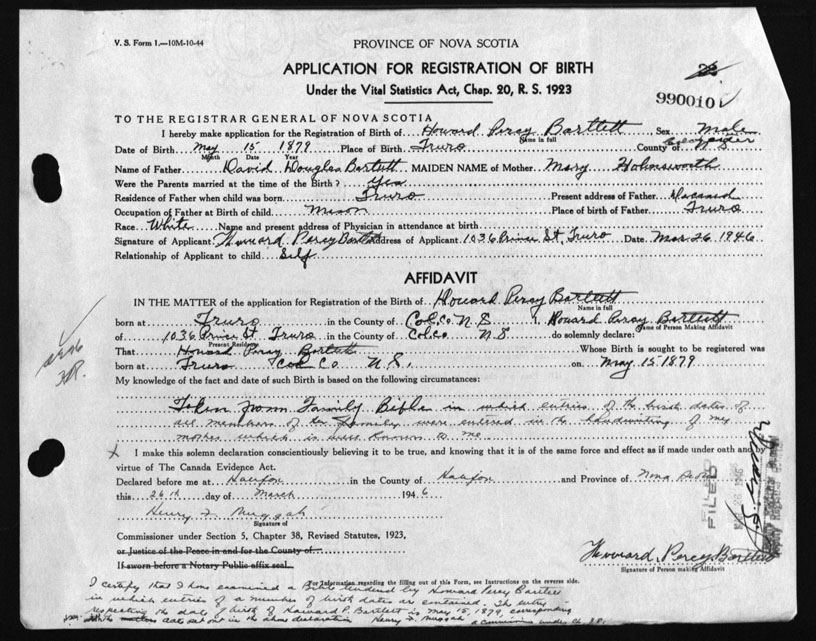 V. S. Form 1.—10M-10-44
PROVINCE OF NOVA SCOTIA
APPLICATION FOR REGISTRATION OF BIRTH
Under the Vital Statistics Act, Chap. 20, R. S. 1923
990010
TO THE REGISTRAR GENERAL OF NOVA SCOTIA
I hereby make application for the Registration of Birth of Howard Percy Bartlett Sex Male
Name in full
Date of Birth May 15 1879 Place of Birth Truro County of Colchester
Month Date Year
Name of Father David Douglas Bartlett MAIDEN NAME of Mother Mary
Were the Parents married at the time of the Birth? Yes
Residence of Father when child was born Truro Present address of Father Deceased
Occupation of Father at Birth of child Mason Place of birth of Father Truro
Race White Name and present address of Physician in attendance at birth
Signature of Applicant Howard Percy Bartlett Address of Applicant 1036 Prince St, Truro Date Mar 26 1946
Relationship of Applicant to child Self
AFFIDAVIT
IN THE MATTER of the application for Registration of the Birth of Howard Percy Bartlett
Name in full
born at Truro in the County of Col. Co. N S I, Howard Percy Bartlett
Name of Person Making Affidavit
of 1036 Prince St. Truro in the County of Col. Co. N.S. do solemnly declare:
Present Residence
That Howard Percy Bartlett Whose Birth is sought to be registered was
born at Truro Col Co N.S. on May 15 1879
My knowledge of the fact and date of such Birth is based on the following circumstances:
Taken from Family Bible in which entries of the birth dates of
all members of the family were entered in the handwriting of my
mother which is well known to me
X I make this solemn declaration conscientiously believing it to be true, and knowing that it is of the same force and effect as if made under oath and by
virtue of The Canada Evidence Act.
Declared before me at Halifax in the County of Halifax and Province of Nova Scotia
this 26th day of March 1946
FILED
Henry F. Muggah
Signature of
Commissioner under Section 5, Chapter 38, Revised Statutes, 1923,
or Justice of the Peace in and for the County of
If sworn before a Notary Public affix seal
Howard Percy Bartlett
Signature of Person making Affidavit
For Information regarding the filling out of this Form, see Instructions on the reverse side.
I certify that I have examined a Bible tendered by Howard Percy Bartlett
in which entries of a number of birth dates are contained. The entry
respecting the date of birth of Howard P. Bartlett is May 15, 1879, corresponding
date set out in the above declaration Henry F. Muggah a Commissioner under Ch 38.